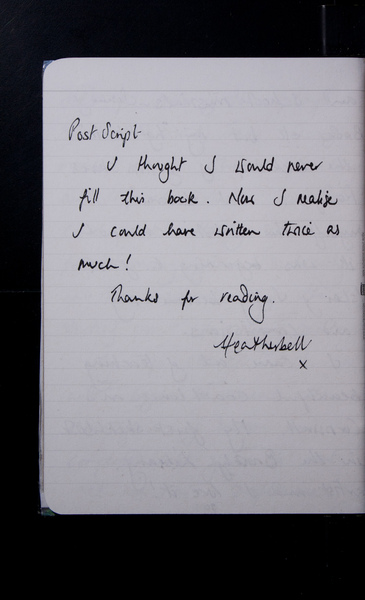 Post Script
I thought I would never
fill this book. Now I realise
I could have written twice as
much!
Thanks for reading.
Heatherbell
x